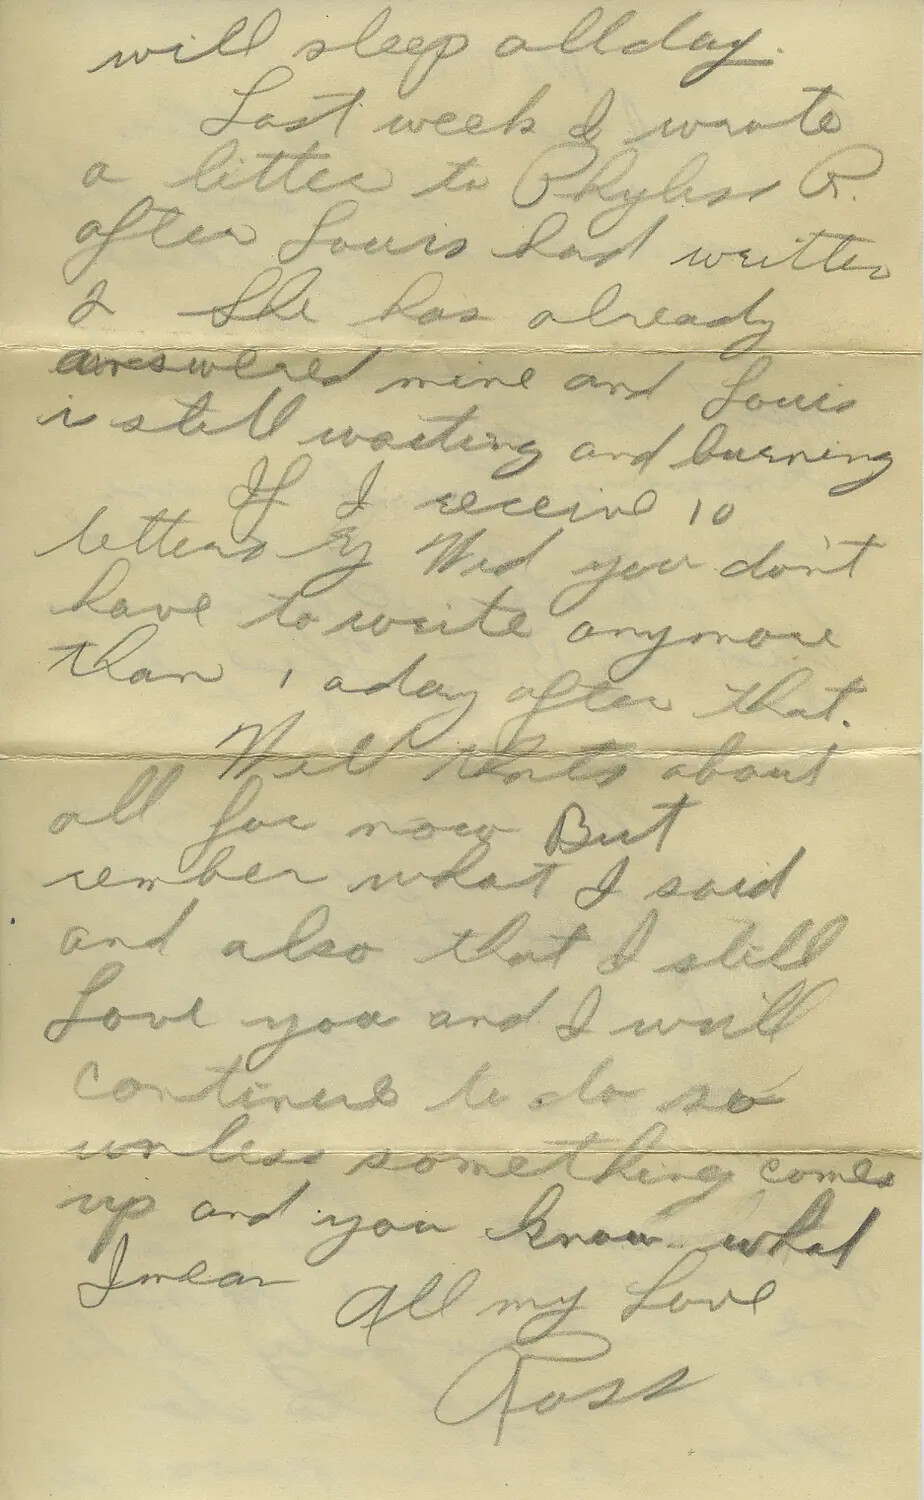 will sleep all day.
Last week I wrote
a letter to Phyliss R.
after Louis had written
& She has already
answered mine and Louis
is still waiting and burning
If I receive 10
letters By Wed you don't
have to write anymore
than 1 a day after that.
Well thats about
all for now But
rember what I said
and also that I still
Love you and I will
continue to do so
unless something comes
up and you know what
I mean
All my Love
Ross